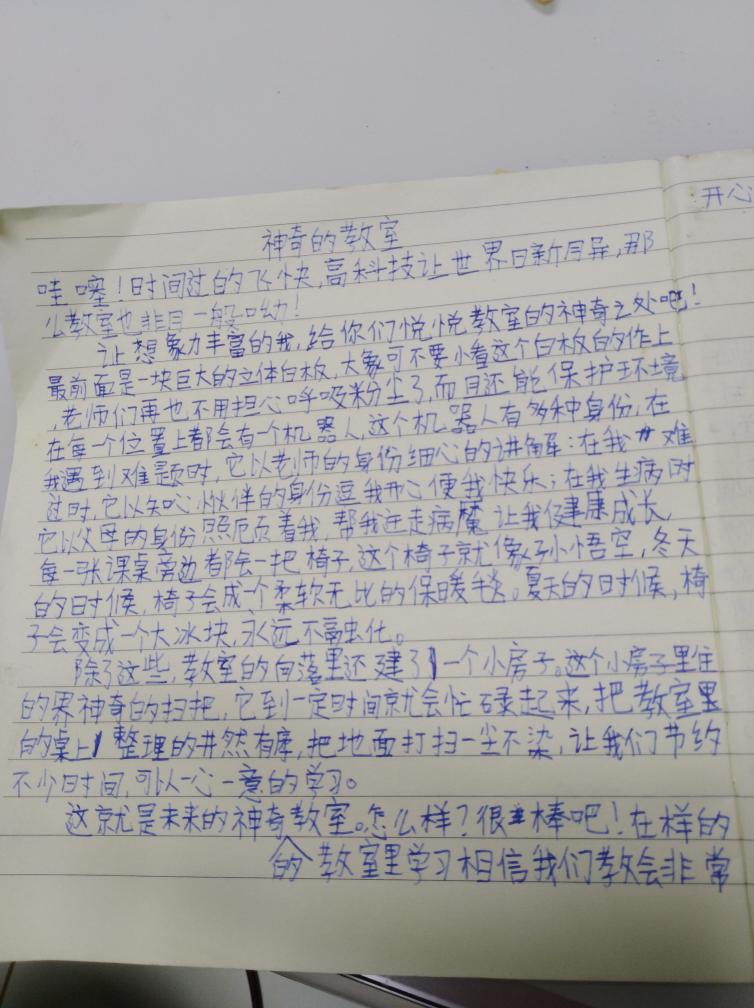 开心
神奇的教室
哇噻！时间过的飞快，高科技让世界日新月异，那
么教室也非同一般呦！
让想象力丰富的我，给你们悦悦教室的神奇之处吧！
最前面是一块巨大的立体白板，大象可不要小看这个白板的作上
，老师们再也不用担心呼吸粉尘了，而且还能保护环境
在每一个位置上都会有一个机器人，这个机器人有多种身份，在
我遇到难题时，它以老师的身份细心的讲解：在我难
过时，它以知心伙伴的身份逗我开心便我快乐；在我生病时
它以父母的身份照顾着我，帮我赶走病魔让我健康成长
每一张课桌旁边都会一把椅子，这个椅子就像孙小悟空，冬天
的时候，椅子会成个柔软无比的保暖毯。夏天的时候，椅
子会变成一个大冰块，永远不融化。
除了这些，教室的向落里还建了一个小房子。这个小房子里住
的界神奇的扫把，它到一定时间就会忙碌起来，把教室里
的桌上整理的井然有序，把地面打扫一尘不染，让我们节约
不少时间，可以一心一意的学习。
这就是未来的神奇教室。怎么样？很棒吧！在样的
的教室里学习相信我们教会非常